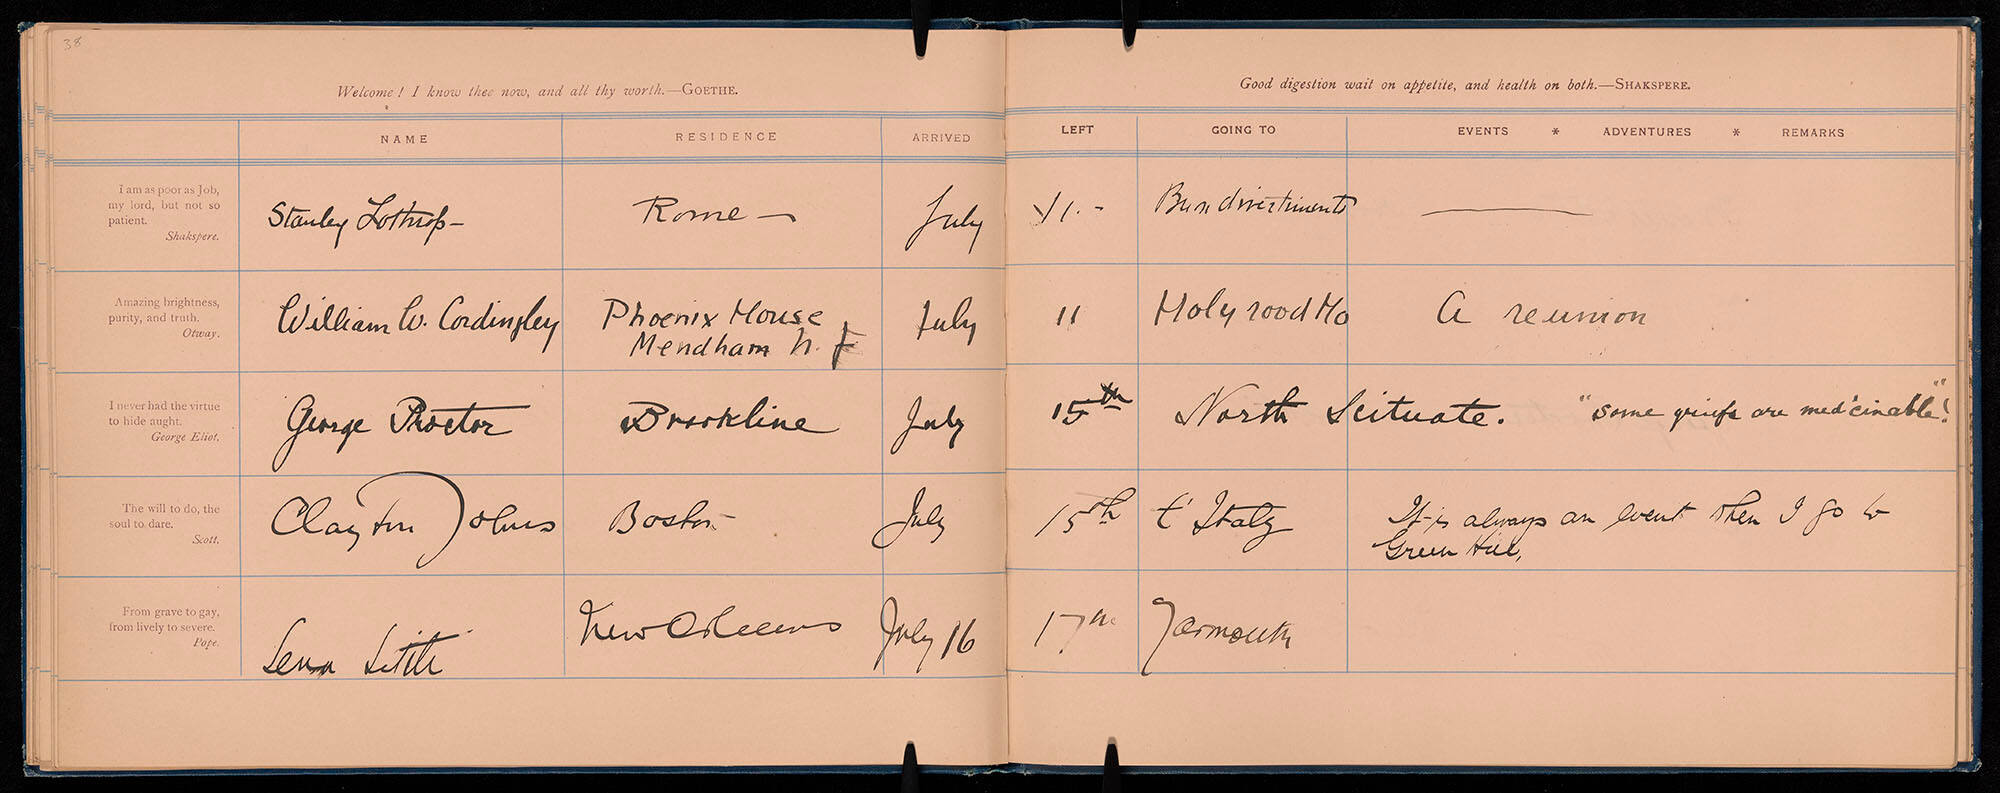 38
Welcome! I know thee now, and all thy worth.—GOETHE.
NAME RESIDENCE ARRIVED
I am as poor as Job,
my lord, but not so
patient.
Shakspere.
Stanley Lothrop— Rome— July
Amazing brightness,
purity, and truth.
Otway.
William W. Cordingley Phoenix House July
Mendham N. J
I never had the virtue
to hide aught.
George Eliot.
George Proctor Brookline July
The will to do, the
soul to dare.
Scott.
Clayton Johns Boston July
From grave to gay,
from lively to severe.
Pope.
Lena Little New Orleans July 16
Good digestion wait on appetite, and health on both.—SHAKSPERE.
LEFT GOING TO EVENTS * ADVENTURES * REMARKS
11.- divertiments
11 Holy rood Ho A reunion
15th North Scituate. "some griefs are med'cinable"!
15th t' Italy It is always an event when I go to
Green Hill.
17th Yarmouth